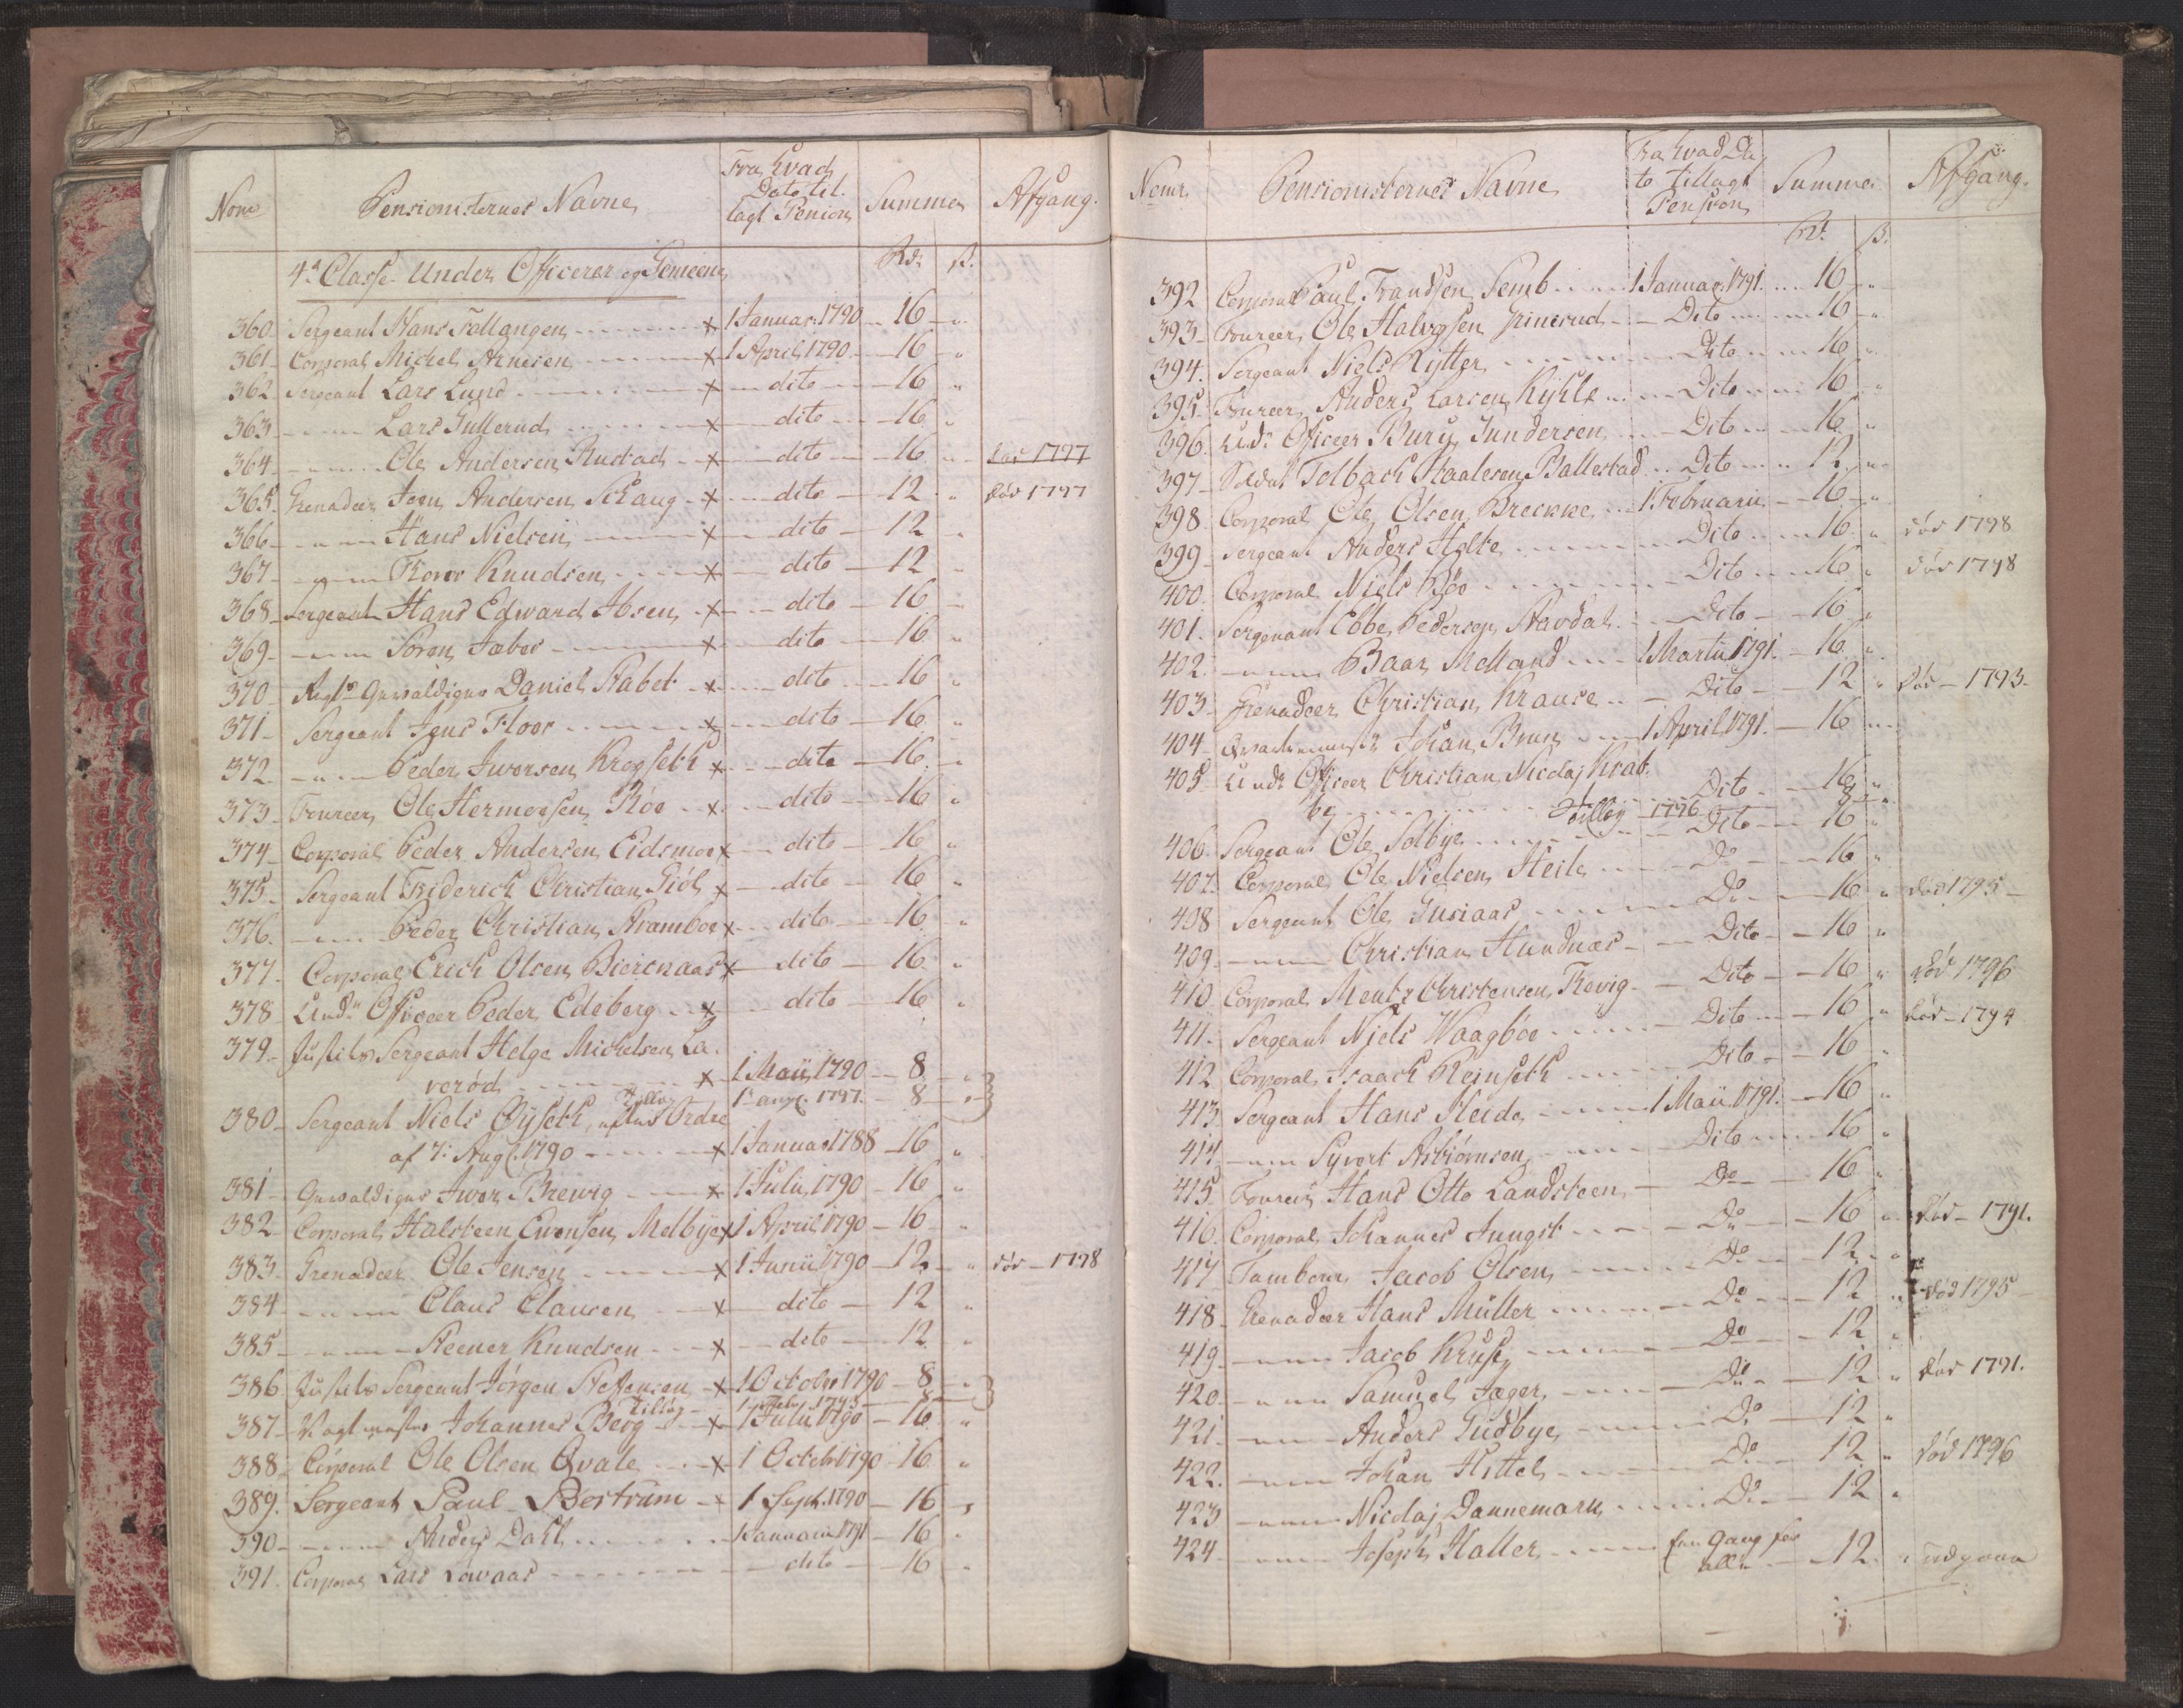 Nom
Pensionisternes Navne
Fra hvad
Dato til
lagt Pension
Summen
Afgang.
4de Classe Under Officerer og Gemeene
Rd. s.
360. Sergeant Hans Fallangen x 1 Januar. 1790 16 "
361. Corporal Michel Arnesen x 1 April 1790 16 "
362 Sergeant Lars Lund x dito 16 "
363 Lars Gullerud x dito 16 "
364 Ole Andersen Rustad x dito 16 " død 1797
365. Grenadeer Joen Andersen Schaug x dito 12 " død 1797
366 Hans Nielsen x dito 12 "
367 Knudsen x dito 12 "
368 Sergeant Hans Edvard Ibsen x dito 16 "
369 Søren Jæber x dito 16 "
370 Regts Gevaldiger Daniel Stabel x dito 16 "
371 Sergeant Jens Floor x dito 16 "
372 Peder Iversen Krogseth x dito 16 "
373 Foureer Ole Hermoesen Røe x dito 16 "
374 Corporal Peder Andersen Eidsmoe x dito 16 "
375 Sergeant Friderich Christian Giøs x dito 16 "
376. Peder Christian Aramboe x dito 16 "
377 Corporal Erich Olsen Biercnaas x dito 16 "
378 Undr Officeer Peder Edeberg x dito 16 "
379 Justits Sergeant Helge Michelsen La-
verød x 1 Maii 1790 8 "
Tillæg 1 aug. 1797. 8 "
380 Sergeant Niels Øyseth, efter Ordre
af 7. Aug. 1790 x 1 Januar 1788 16 "
381 Gevaldiger Iver Brewig x 1 Julii 1790 16 "
382 Corporal Halsteen Evensen Melbye x 1 April 1790 16 "
383 Grenadeer Ole Jensen x 1 Junii 1790 12 " død 1798
384 Claus Clausen x dito 12 "
385 Steener Knudsen x dito 12 "
386. Justits Sergeant Jørgen Steffensen x 1 Octobr 1790 8 "
Tillæg 8
387 Vagtmester Johannes Berg x 1 Julii 1790 16 "
388. Corporal Ole Olsen Qvale x 1 Octobr 1790 16 "
389. Sergeant Paul Bertrum x 1 Sept. 1790 16 "
390 Anders Dahl 1 Januarii 1791 16 "
391. Corporal Lars Lowaas dito 16 "
Nomr.
Pensionisternes Navne
Fra hvad Da
to tillagt
Pension
Summe
Afgang.
Rd. s.
392 Corporal Paul Frandsen Semb 1 Januar. 1791. 16 "
393 Foureer Ole Halvorsen Dito 16 "
394. Sergeant Niels Rytter Dito 16 "
395. Foureer Anders Larsen Kykle Dito 16 "
396. Undr Officeer Gundersen Dito 16 "
397 Soldat Tolbach Staalesen Ballestad Dito 12 "
398 Corporal Ole Olsen Breckke 1 Februarii 16 "
399 Sergeant Anders Holte Dito 16 " død 1798
400 Corporal Niels Boe Dito 16 " død 1798
401. Sergeant Ebbe Pedersen Aavdal Dito 16 "
402. Baar Melland 1 Martii 1791. 16 "
403 Grenadeer Christian Krause Dito 12 " død 1793.
404 Johan Brun 1 April 1791. 16 "
405 Undr Officeer Christian Nicolaj Krab-
be Dito 16 "
Tillæg 1796 8
406. Sergeant Ole Solbye Dito 16 "
407. Corporal Ole Nielsen Heile Do 16 "
408 Sergeant Ole Do 16 " død 1795
409 Christian Hundnæs Dito 16 "
410 Corporal Mentz Christensen Dito 16 " død 1796
411. Sergeant Niels Waagbøe Dito 16 " død 1794
412 Corporal Isaach Reinseth Dito 16 "
413 Sergeant Hans Heide 1 Maii 1791. 16 "
414 Syvert Asbiørnsen Dito 16 "
415. Foureer Hans Otto Landsteen Do 16 "
416. Corporal Johannes Jungst Do 16 " død 1791.
417 Tambour Jacob Olsen Do 12 "
418 Grenadeer Hans Müller Do 12 " død 1795
419. Jacob Kruse Do 12 "
420. Samuel Jæger Do 12 " død 1791.
421. Anders Gudbye Do 12 "
422. Johan Hittel Do 12 " død 1796
423 Nicolaj Dannemark Do 12 "
424 Joseph Haller Een Gang for
alle 12 "